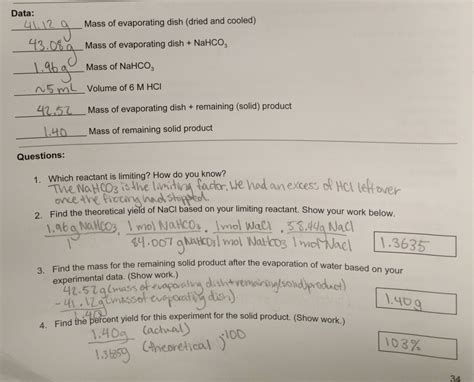 Data:
41.12 g Mass of evaporating dish (dried and cooled)
43.08g Mass of evaporating dish + NaHCO₃
1.96g Mass of NaHCO₃
~5mL Volume of 6 M HCl
42.52 Mass of evaporating dish + remaining (solid) product
1.40 Mass of remaining solid product
Questions:
1. Which reactant is limiting? How do you know?
The NaHCO3 is the limiting factor. We had an excess of HCl left over
once the had stopped.
2. Find the theoretical yield of NaCl based on your limiting reactant. Show your work below.
1.96g NaHCO3 . 1 mol NaHCO3 . 1 mol NaCl . 58.44g NaCl
1 84.007 g NaHCO3 1 mol NaHCO3 1 mol NaCl
1.3635
3. Find the mass for the remaining solid product after the evaporation of water based on your
experimental data. (Show work.)
42.52g (mass of evaporating dish + remaining (solid) product)
- 41.12g (mass of evaporating dish)
1.40
1.40g
4. Find the percent yield for this experiment for the solid product. (Show work.)
1.40g (actual) ·100
1.3635g (theoretical)
103%
34